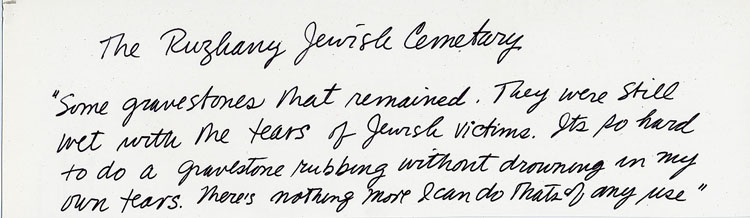 The Ruzhany Jewish Cemetary
"Some gravestones that remained. They were still
wet with the tears of Jewish victims. Its so hard
to do a gravestone rubbing without drowning in my
own tears. There's nothing more I can do thats of any use"